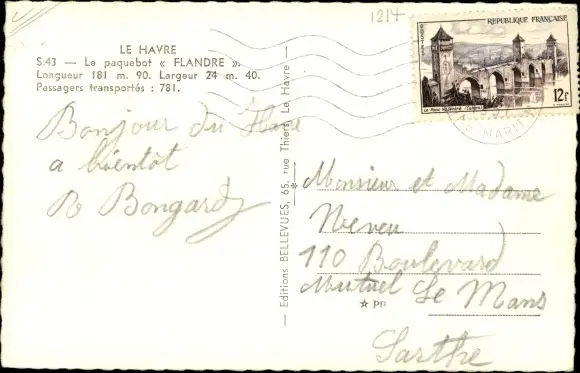 1214
LE HAVRE
S.43 — Le paquebot « FLANDRE ».
Longueur 181 m. 90. Largeur 24 m. 40.
Passagers transportés : 781.
Bonjour du Havre
a bientôt
R Bongard
— Editions BELLEVUES, 65, rue Thiers, Le Havre —
REPUBLIQUE FRANÇAISE
Le Pont Valentré (Cahors)
12F
Monsieur et Madame
Neveu
110 Boulevard
Mutuel Le Mans
Sarthe